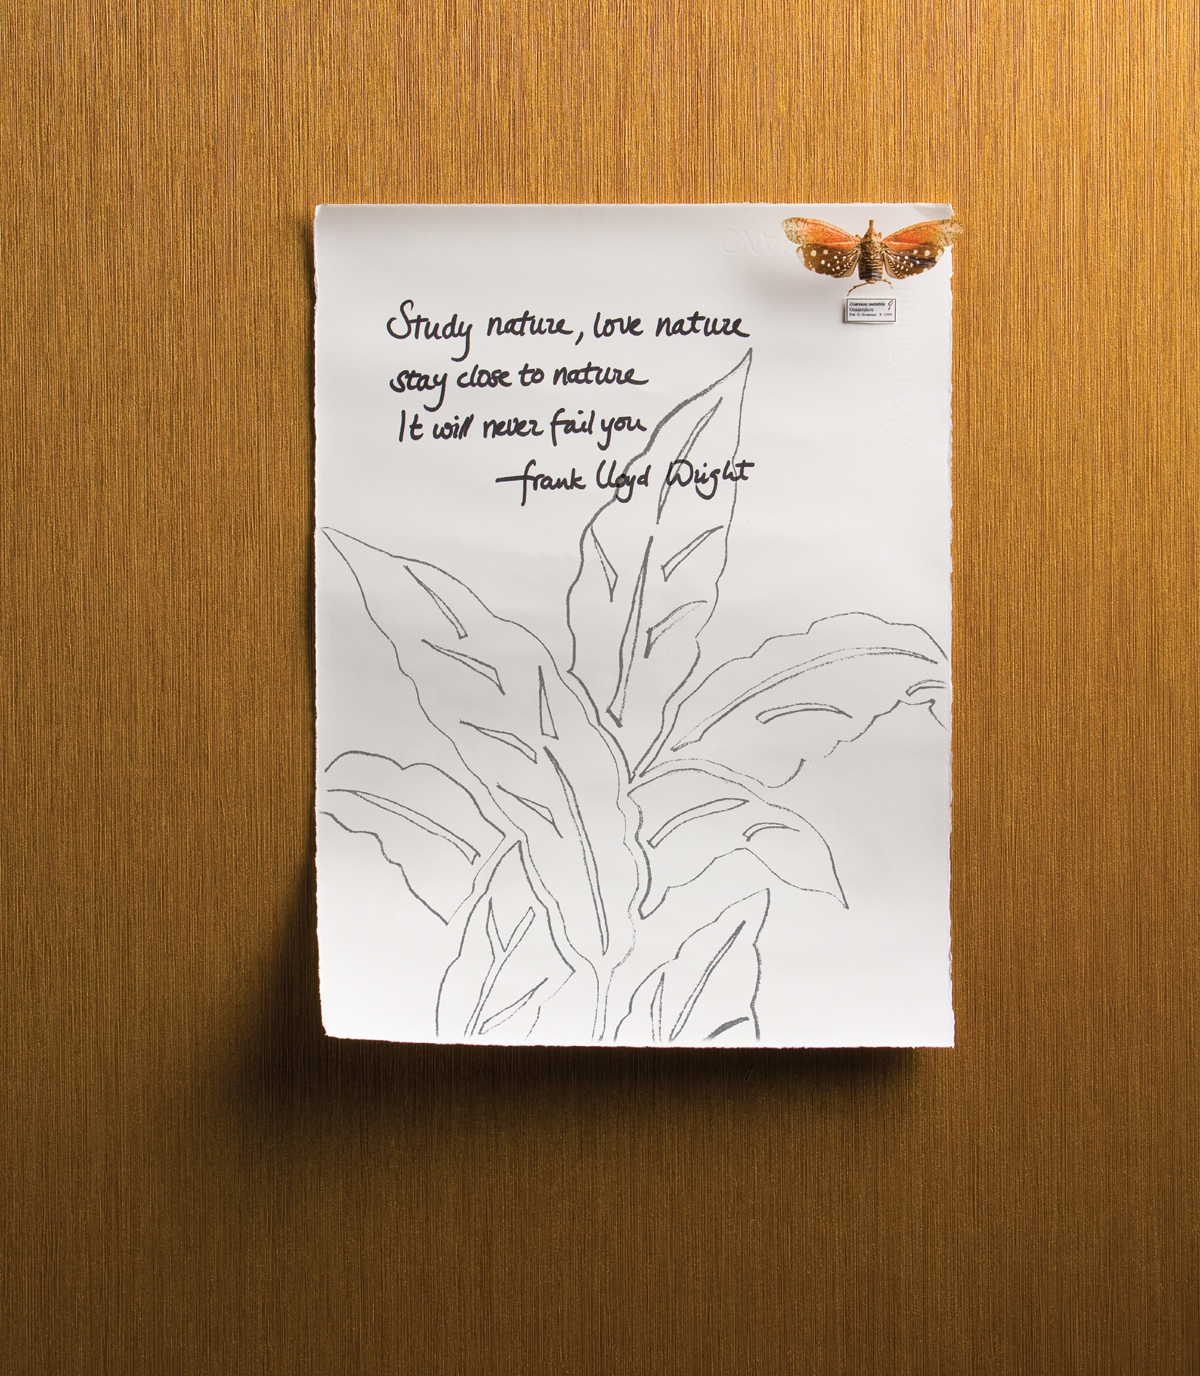 Study nature, love nature
stay close to nature
It will never fail you
—frank lloyd Wright